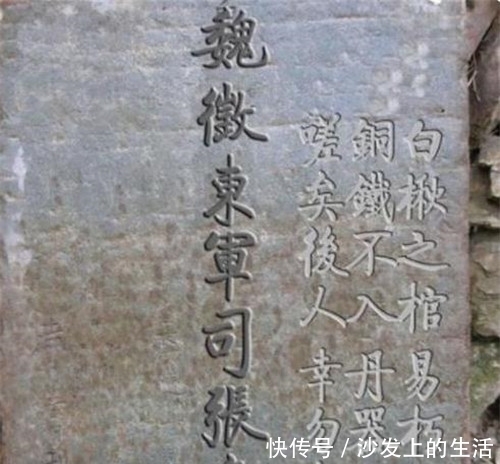 白楸之棺易朽
銅鐵不入丹器
嗟矣後人幸勿
魏徵東軍司張
快传号/沙发上的生活